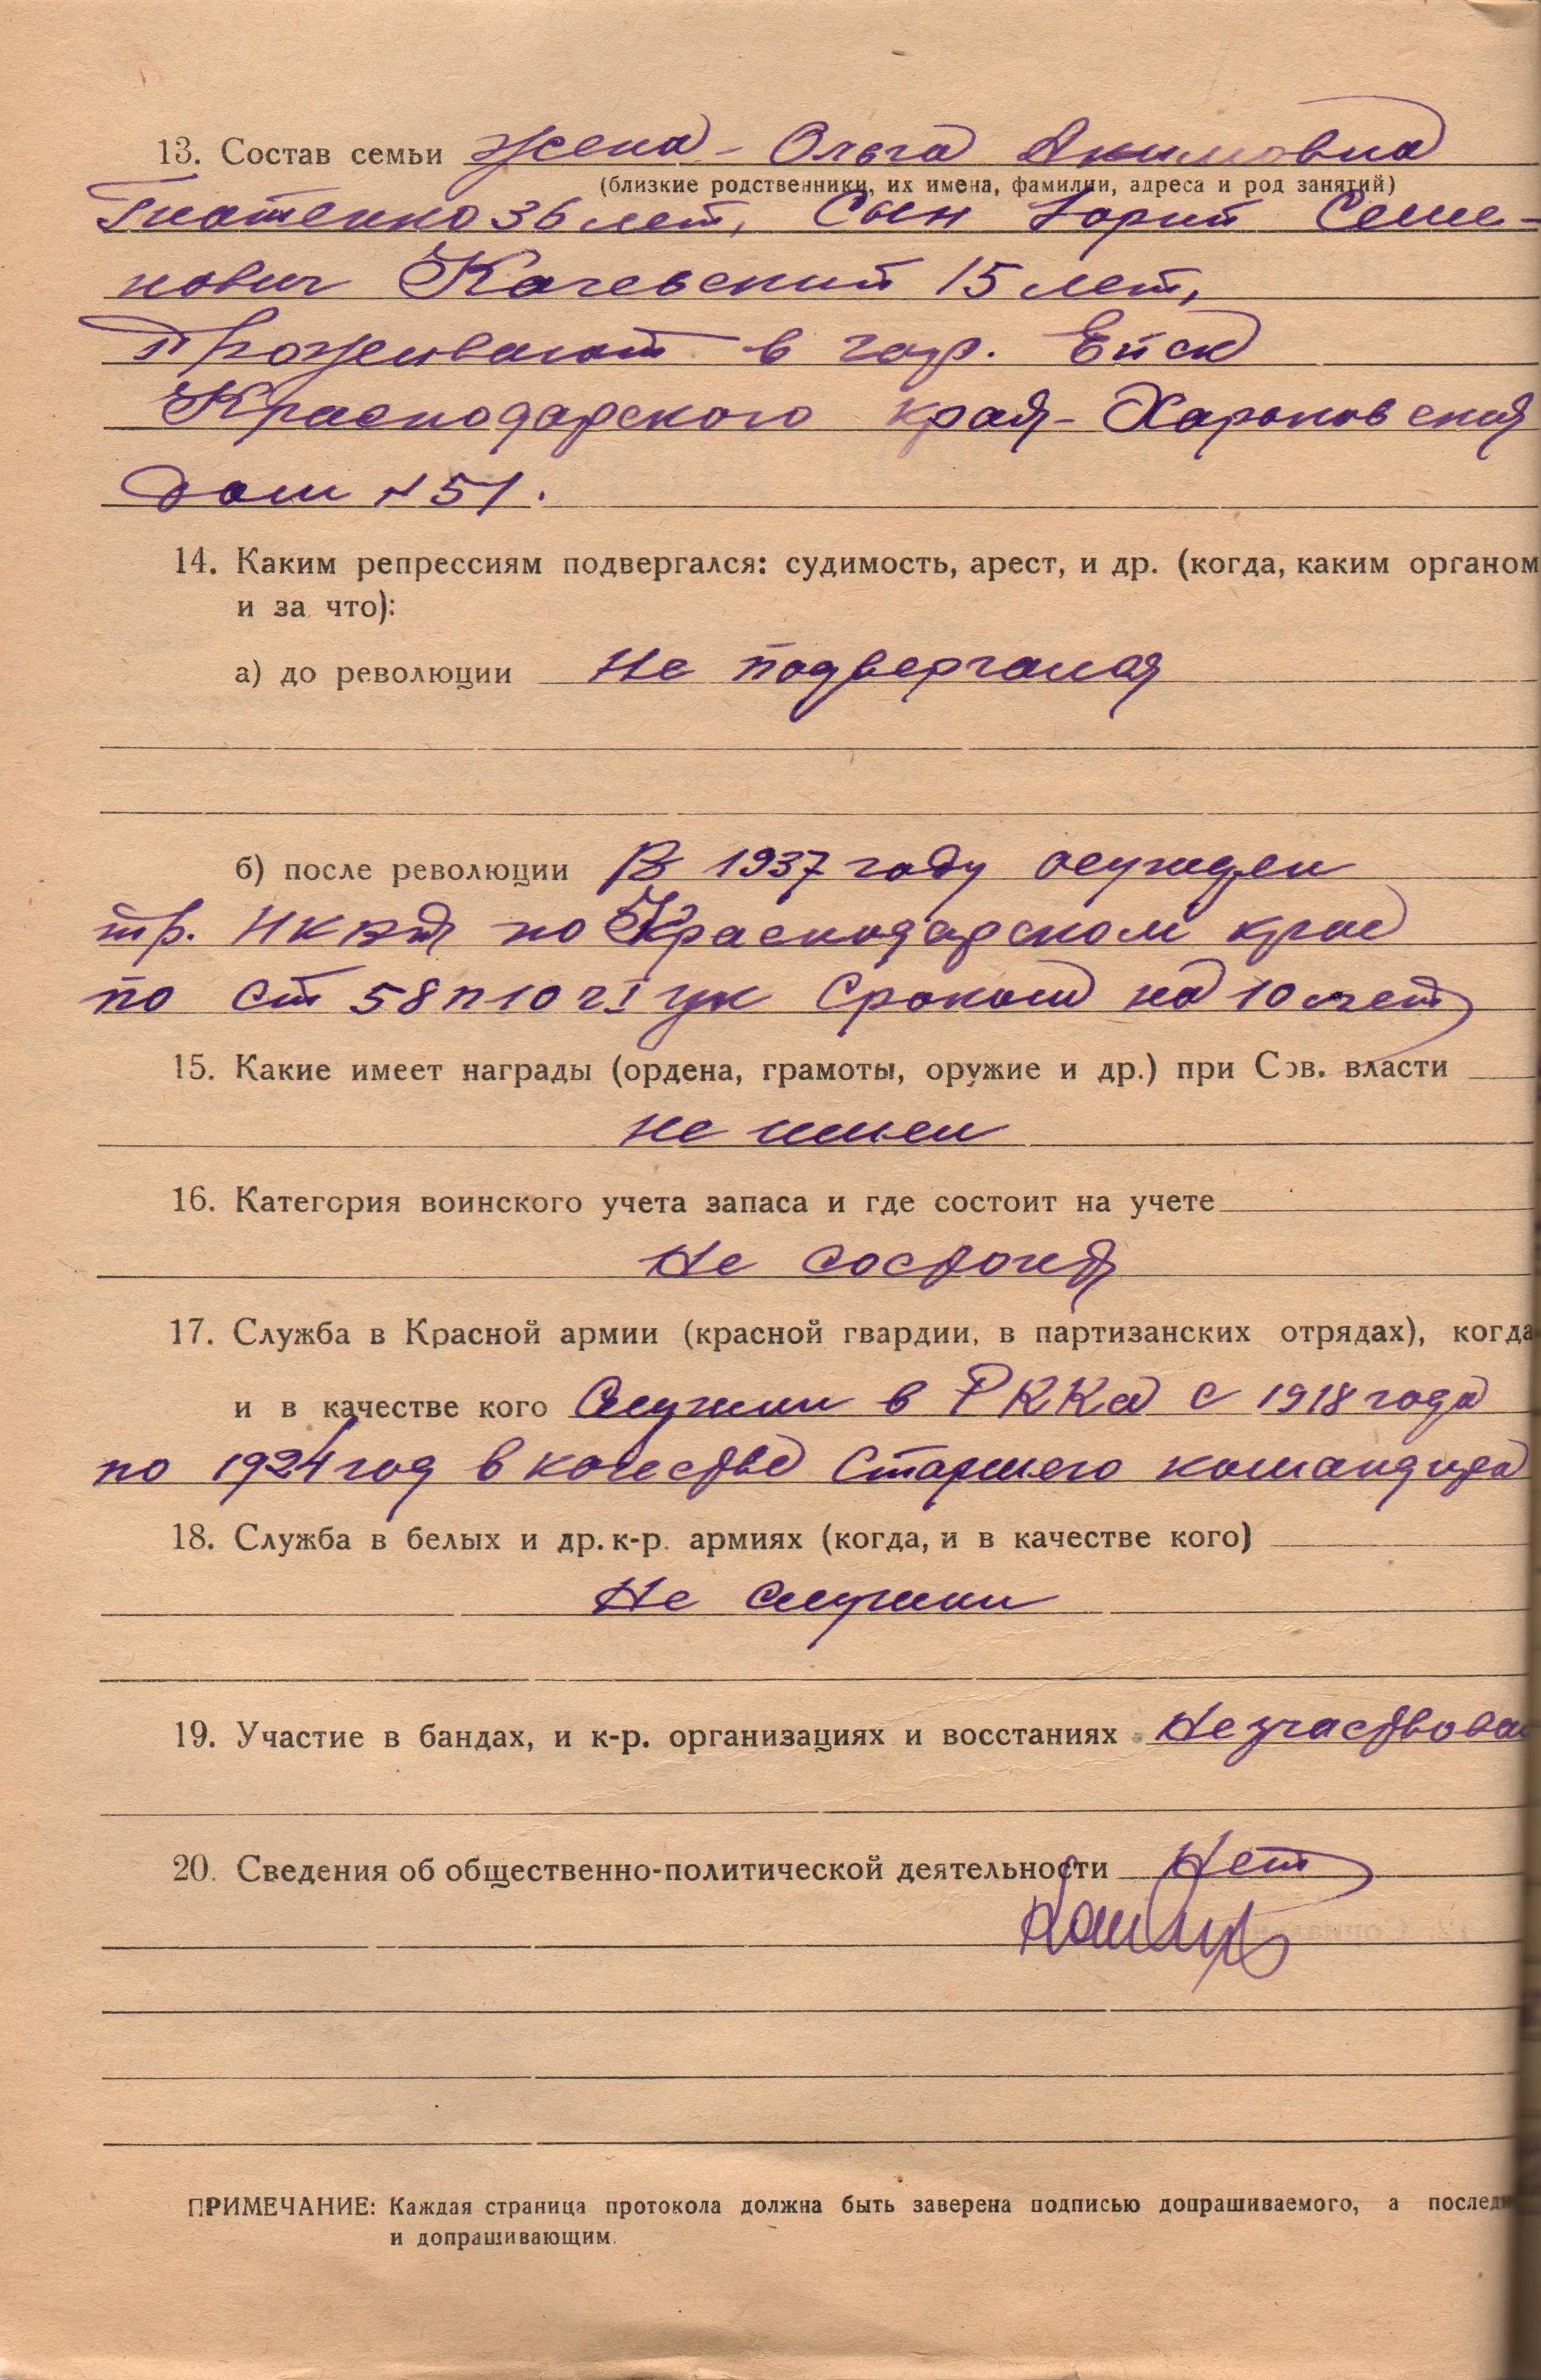 13. Состав семьи Жена - Ольга Акимовна
(близкие родственники, их имена, фамилии, адреса и род занятий)
Гнатенко 36 лет, Сын Юрий Семе-
нович Качевский 15 лет,
Проживают в гор. Ейск
Краснодарского края - Харьковская
дом № 51.
14. Каким репрессиям подвергался: судимость, арест, и др. (когда, каким органом
и за что):
а) до революции Не подвергался
б) после революции В 1937 году осужден
тр. НКВД по Краснодарском крае
по ст 58 п 10 ч I УК сроком на 10 лет
15. Какие имеет награды (ордена, грамоты, оружие и др.) при Сов. власти
не имеет
16. Категория воинского учета запаса и где состоит на учете
Не состоит
17. Служба в Красной армии (красной гвардии, в партизанских отрядах), когда
и в качестве кого Служил в РККА с 1918 года
по 1924 год в качестве старшего командира
18. Служба в белых и др. к-р. армиях (когда, и в качестве кого)
Не служил
19. Участие в бандах, и к-р. организациях и восстаниях Не участвовал
20. Сведения об общественно-политической деятельности Нет
ПРИМЕЧАНИЕ: Каждая страница протокола должна быть заверена подписью допрашиваемого, а
и допрашивающим.